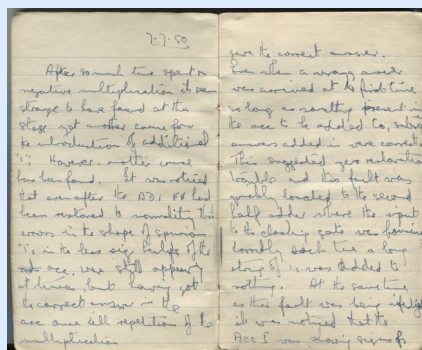 7.7.50
After so much time spent on
negative multiplication it seems
strange to have found at this
stage yet another cause for
the introduction of additional
"1"s. However another cause
has been found. It was noticed
that even after the AD1 had
been restored to normality this
errors in the shape of spurious
"1"s in the less sig. halves of the
acc, were still appearing
at times, but having got
the correct answer in the
acc once all repetition of the
multiplication
gave the correct answer.
Even when a wrong answer
was arrived at the first time
so long as something present in
the acc to be added to,
answers added in were correct.
This suggested zero restoration
trouble and the fault was
quickly located to the second
half adder where the input
to the clocking gate was
horribly each time a long
string of 1s was added to
nothing. At the same time
as this fault was being
it was noticed that the
Acc I was showing signs of